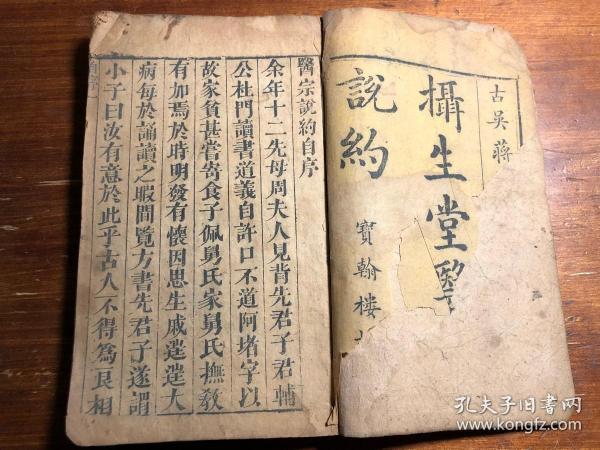 古吳蔣
攝生堂醫
說約
寶翰楼
醫宗說約自序
余年十二先母周夫人見背先君子君輔
公杜門讀書道義自許口不道阿堵字以
故家貧甚嘗寄食子佩舅氏家舅氏撫教
有加焉於時明發有懷因思生戚遑遑大
病每於誦讀之暇間覽方書先君子遂謂
小子曰汝有意於此乎古人不得爲良相
孔夫子旧书网
www.kongfz.com